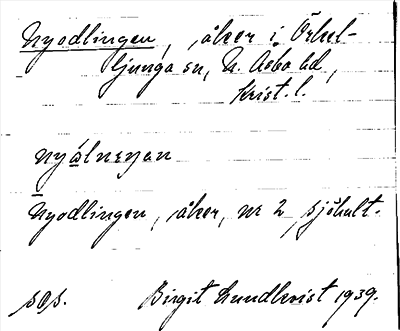 Nyodlingen, åker i Örkel-
ljunga sn, N. Åsbo hd,
Krist. l.
nyálneŋan
Nyodlingen, åker, nr 2, Sjöhult.
sås. Birgit Lundkvist 1939.